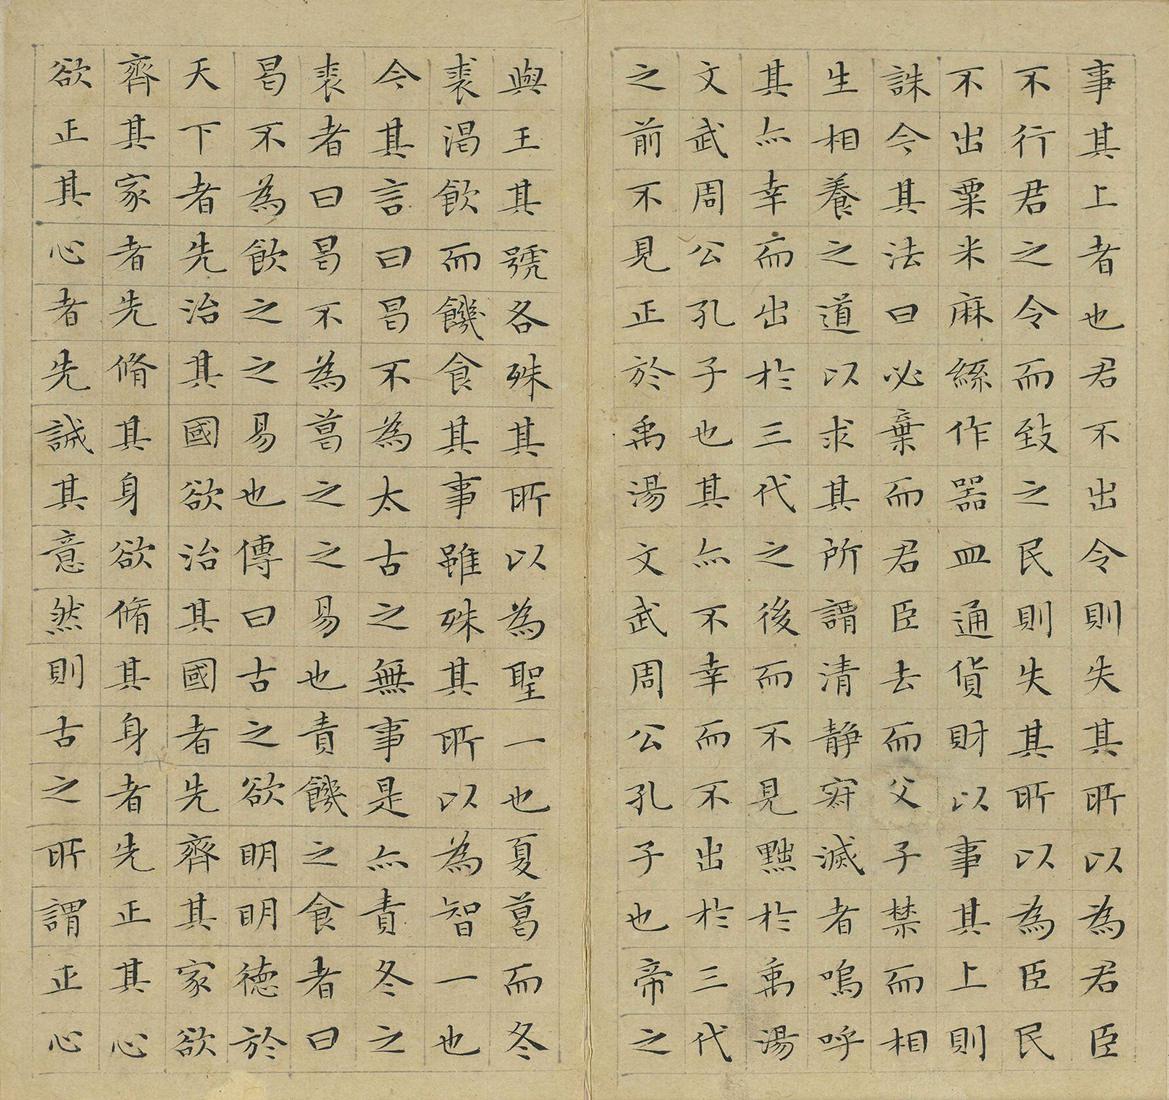 事其上者也君不出令則失其所以為君臣
不行君之令而致之民則失其所以為臣民
不出粟米麻絲作器皿通貨財以事其上則
誅今其法曰必棄而君臣去而父子禁而相
生相養之道以求其所謂清静寂滅者嗚呼
其亦幸而出於三代之後而不見黜於禹湯
文武周公孔子也其亦不幸而不出於三代
之前不見正於禹湯文武周公孔子也帝之
與王其號各殊其所以為聖一也夏葛而冬
裘渴飲而饑食其事雖殊其所以為智一也
今其言曰曷不為太古之無事是亦責冬之
裘者曰曷不為葛之之易也責饑之食者曰
曷不為飲之之易也傳曰古之欲明明德於
天下者先治其國欲治其國者先齊其家欲
齊其家者先脩其身欲脩其身者先正其心
欲正其心者先誠其意然則古之所謂正心